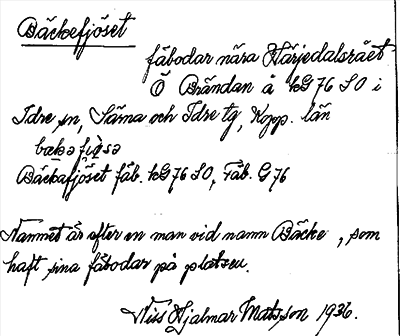 Bäckefjöset
fäbodar nära Härjedalsrået
Ö Brändan å kG 76 SO i
Idre sn, Särna och Idre tg, Kopp. län
bækəfjøsə
Bäckafjöset fäb. kG 76 SO, Fäb. G 76
Namnet är efter en man vid namn Bäcke, som
haft sina fäbodar på platsen.
Nils Hjalmar Matsson 1936.